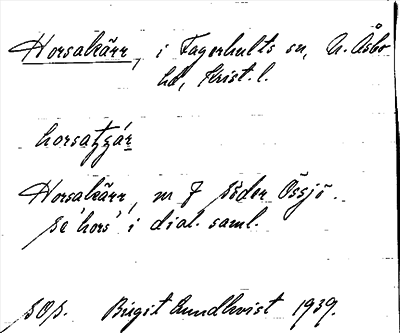 Horsakärr, i Fagerhults sn, N. Åsbo
hd, Krist. l.
horsatɟá̱r
Horsakärr, m f söder Össjö.
se 'hors' i dial. saml.
sOp. Birgit Lundkvist 1939.